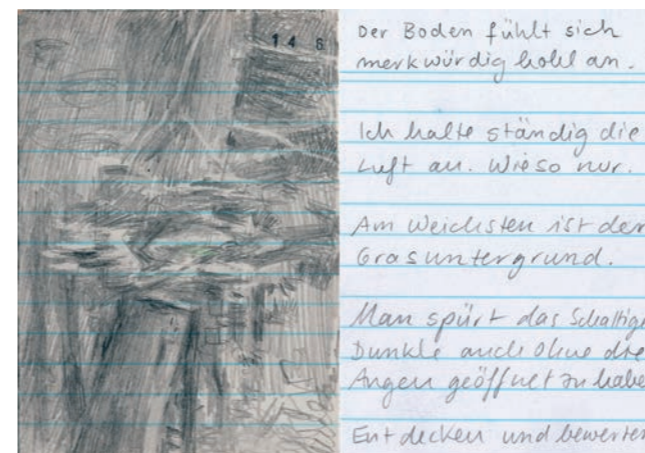 14 6
Der Boden fühlt sich
merkwürdig hohl an.
Ich halte ständig die
Luft an. Wieso nur.
Am Weichsten ist der
Grasuntergrund.
Man spürt das Schattige
Dunkle auch ohne die
Augen geöffnet zu habe
Entdecken und bewerten